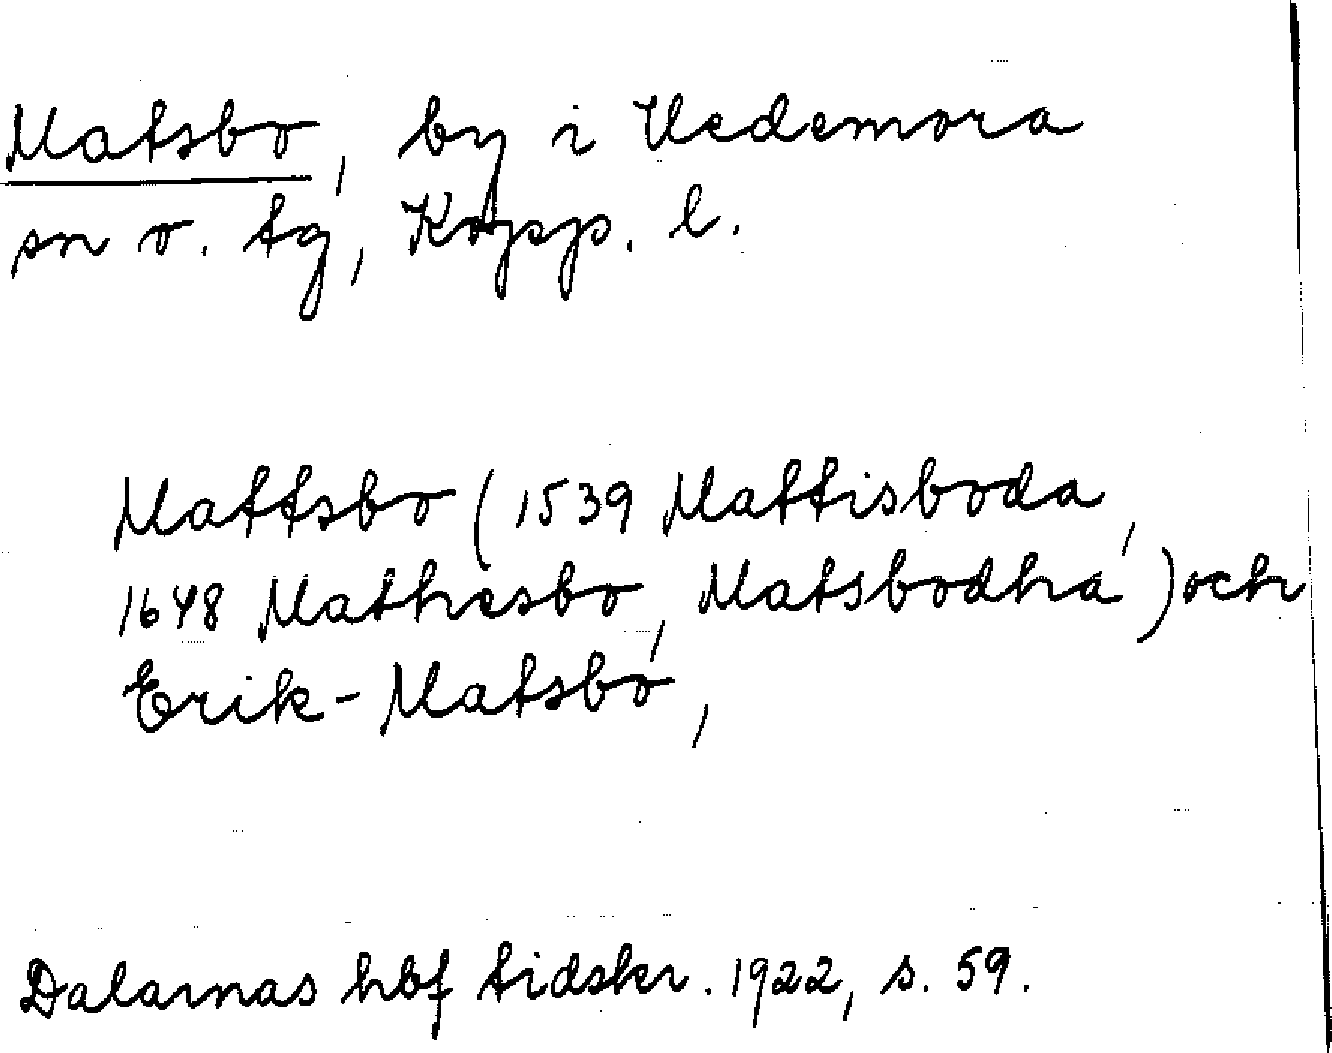 Matsbo, by i Hedemora
sn o. tg, Kopp. l.
Mattsbo (1539 Mattisboda,
1648 Mathesbo, Matsbodha) och
Erik-Matsbo,
Dalarnas hbf tidskr. 1922, s. 59.